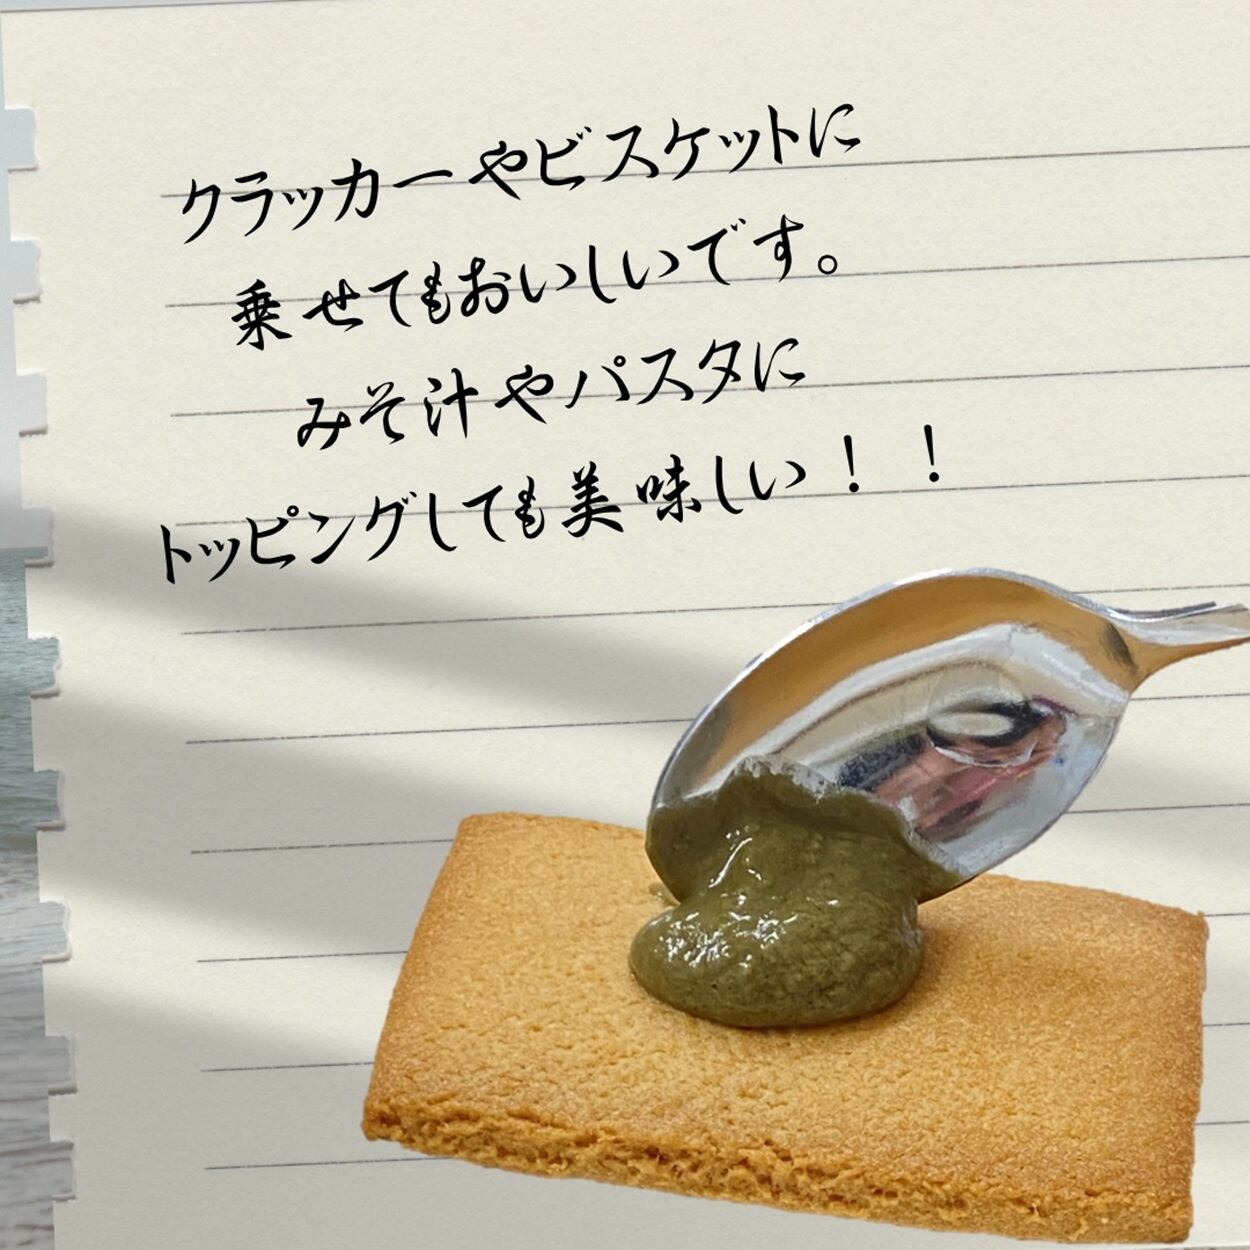 クラッカーやビスケットに
乗せてもおいしいです。
みそ汁やパスタに
トッピングしても美味しい！！